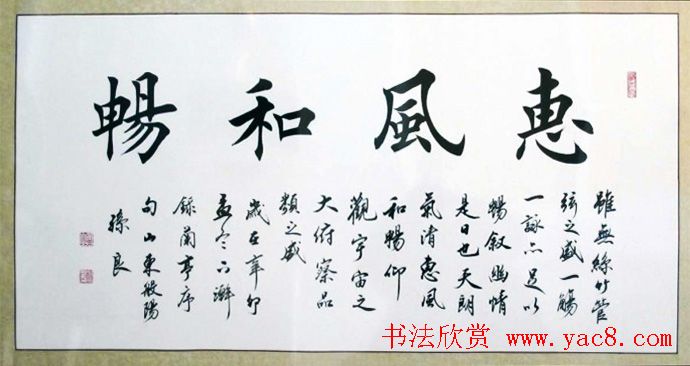 惠風和暢
雖無絲竹管
弦之盛一觴
一詠亦足以
暢敘幽情
是日也天朗
氣清惠風
和暢仰
觀宇宙之
大府察品
類之盛
歲在辛卯
孟冬下澣
錄蘭亭序
句山東陽
孫良
书法欣赏 www.yac8.com